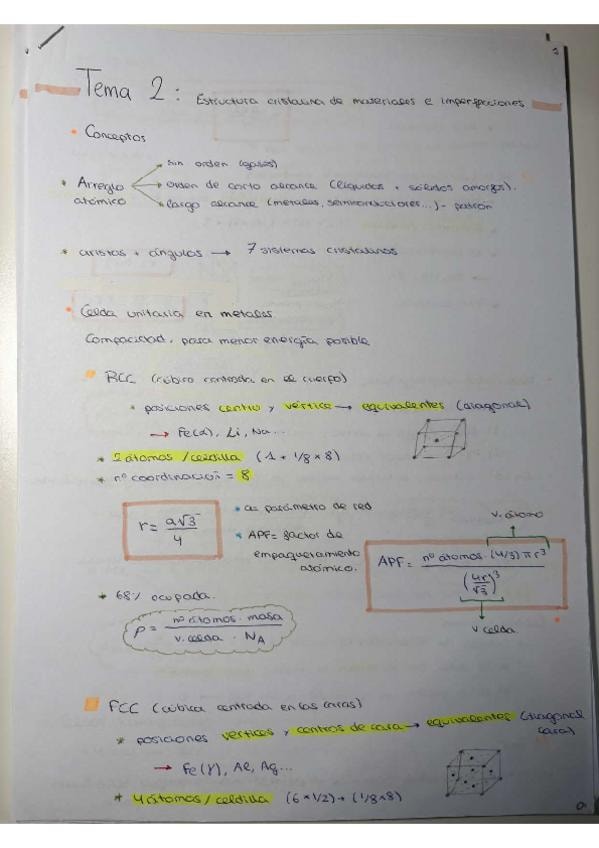 Tema 2: Estructura cristalina de materiales e imperfecciones
• Conceptos
sin orden (gases)
* Arreglo atómico
orden de corto alcance (líquidos + sólidos amorfos).
largo alcance (metales, semiconductores...) - patrón
* aristas + ángulos → 7 sistemas cristalinos
• Celda unitaria en metales
Compacidad, para menor energía posible
BCC (cúbico centrada en el cuerpo)
* posiciones centro y vértice → equivalentes (diagonal)
→ Fe(α), Li, Na...
* 2 átomos/celdilla (1 + 1/8 × 8)
* nº coordinación = 8
r = a√3 / 4
* a = parámetro de red
* APF = factor de empaquetamiento atómico.
v. átomo
APF = nº átomos · (4/3) π r³ / (4r/√3)³
v celda
* 68% ocupada.
ρ = nº átomos · masa / v. celda · N_A
FCC (cúbica centrada en las caras)
* posiciones vértices y centros de cara → equivalentes (diagonal cara)
→ Fe(γ), Al, Ag...
* 4 átomos/celdilla (6 × 1/2) + (1/8 × 8)